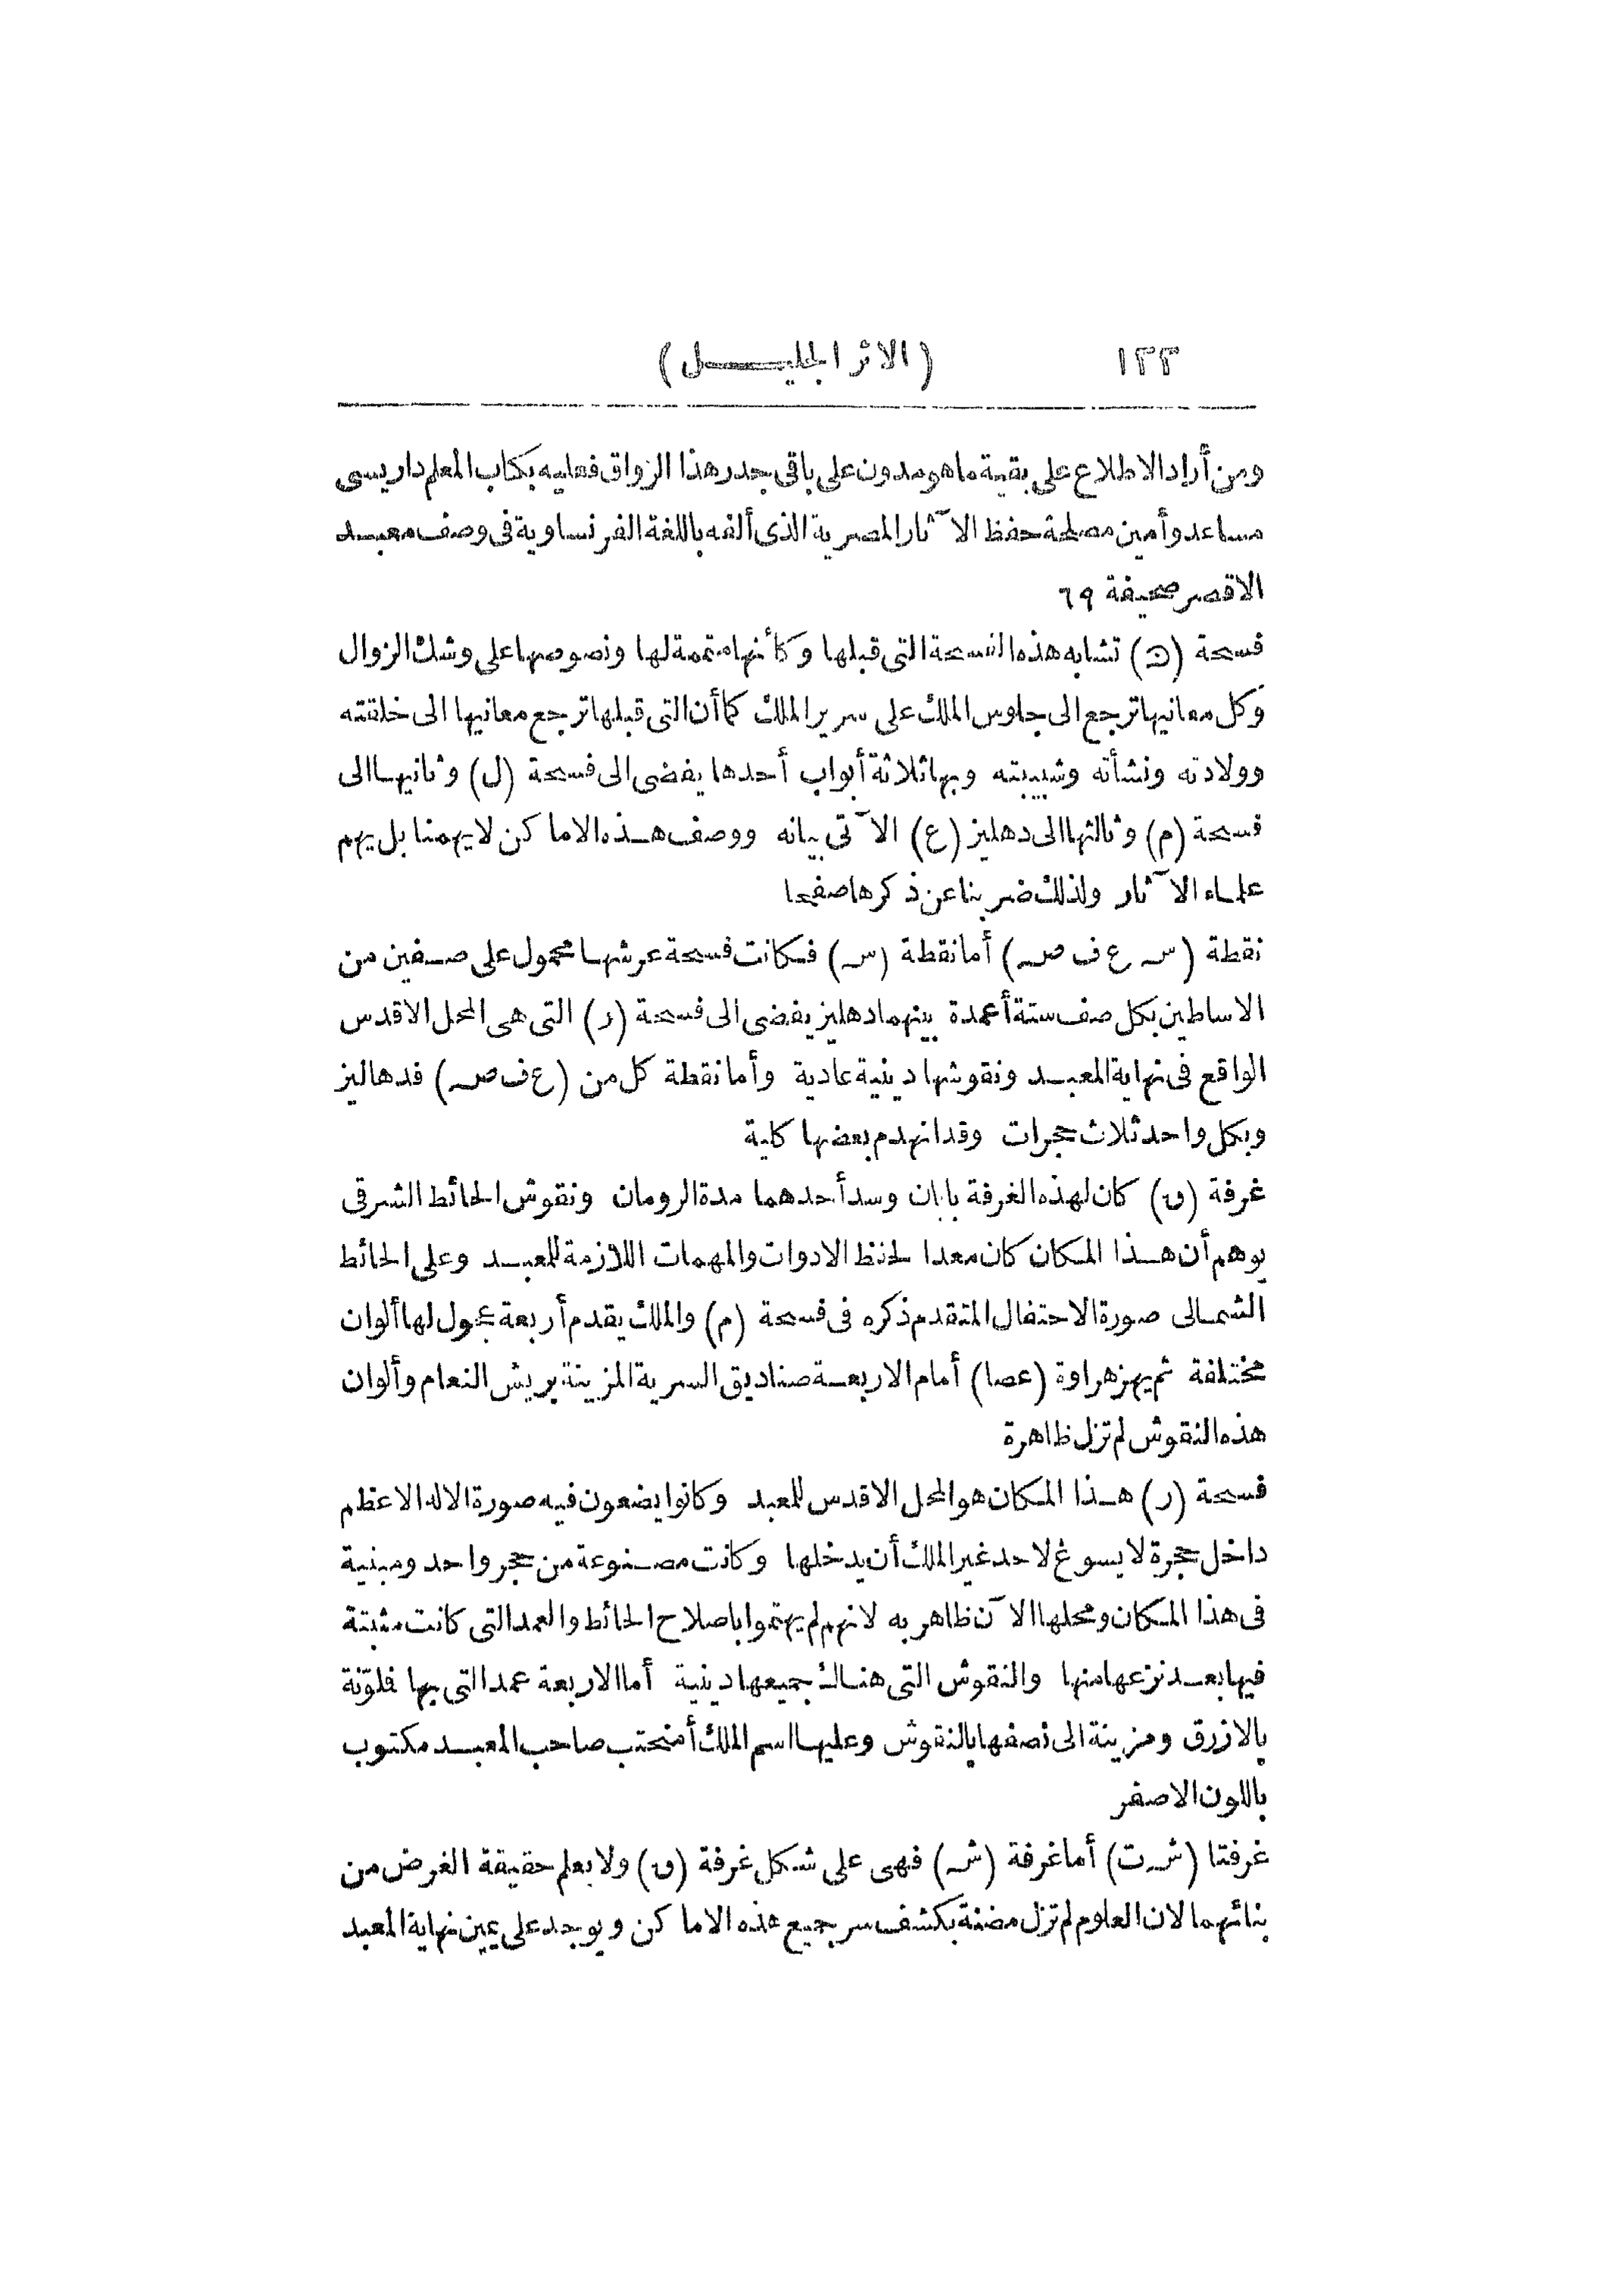 ١٢٢ (الاثر الجليل)
ومن أراد الاطلاع على بقية ما هو مدون على باقى جدر هذا الرواق فعليه بكتاب المعلم داريسى
مساعد وأمين مصلحة حفظ الآثار المصرية الذى ألفه باللغة الفرنساوية فى وصف معبد
الاقصر صحيفة ٦٩
فسحة (ن) تشابه هذه الفسحة التى قبلها وكأنها متممة لها ونصوصها على وشك الزوال
وكل معانيها ترجع الى جلوس الملك على سرير الملك كما أن التى قبلها ترجع معانيها الى خلقته
وولادته ونشأته وشبيبته وبها ثلاثة أبواب أحدها يفضى الى فسحة (ل) وثانيها الى
فسحة (م) وثالثها الى دهليز (ع) الآتى بيانه ووصف هذه الاماكن لا يهمنا بل يهم
علماء الآثار ولذلك ضربنا عن ذكرها صفحا
نقطة (س ع ف ص) أما نقطة (س) فكانت فسحة عرشها محمول على صفين من
الاساطين بكل صف ستة أعمدة بينهما دهليز يفضى الى فسحة (ر) التى هى المحل الاقدس
الواقع فى نهاية المعبد ونقوشها دينية عادية وأما نقطة كل من (ع ف ص) فدهاليز
وبكل واحد ثلاث حجرات وقد انهدم بعضها كلية
غرفة (ق) كان لهذه الغرفة بابان وسد أحدهما مدة الرومان ونقوش الحائط الشرقى
يوهم أن هذا المكان كان معدا لحفظ الادوات والمهمات اللازمة للمعبد وعلى الحائط
الشمالى صورة الاحتفال المتقدم ذكره فى فسحة (م) والملك يقدم أربعة عجول لها ألوان
مختلفة ثم يهز هراوة (عصا) أمام الاربعة صناديق السرية المزينة بريش النعام وألوان
هذه النقوش لم تزل ظاهرة
فسحة (ر) هذا المكان هو المحل الاقدس للمعبد وكانوا يضعون فيه صورة الاله الاعظم
داخل حجرة لا يسوغ لاحد غير الملك أن يدخلها وكانت مصنوعة من حجر واحد ومبنية
فى هذا المكان ومحلها الآن ظاهر به لانهم لم يهتموا باصلاح الحائط والعمد التى كانت مثبتة
فيها بعد نزعها منها والنقوش التى هناك جميعها دينية أما الاربعة عمد التى بها فلوّنة
بالازرق ومزينة الى نصفها بالنقوش وعليها اسم الملك أمنحتب صاحب المعبد مكتوب
باللون الاصفر
غرفتا (ش ت) أما غرفة (ش) فهى على شكل غرفة (ق) ولا يعلم حقيقة الغرض من
بنائهما لان العلوم لم تزل مضنة بكشف سر جميع هذه الاماكن ويوجد على يمين نهاية المعبد